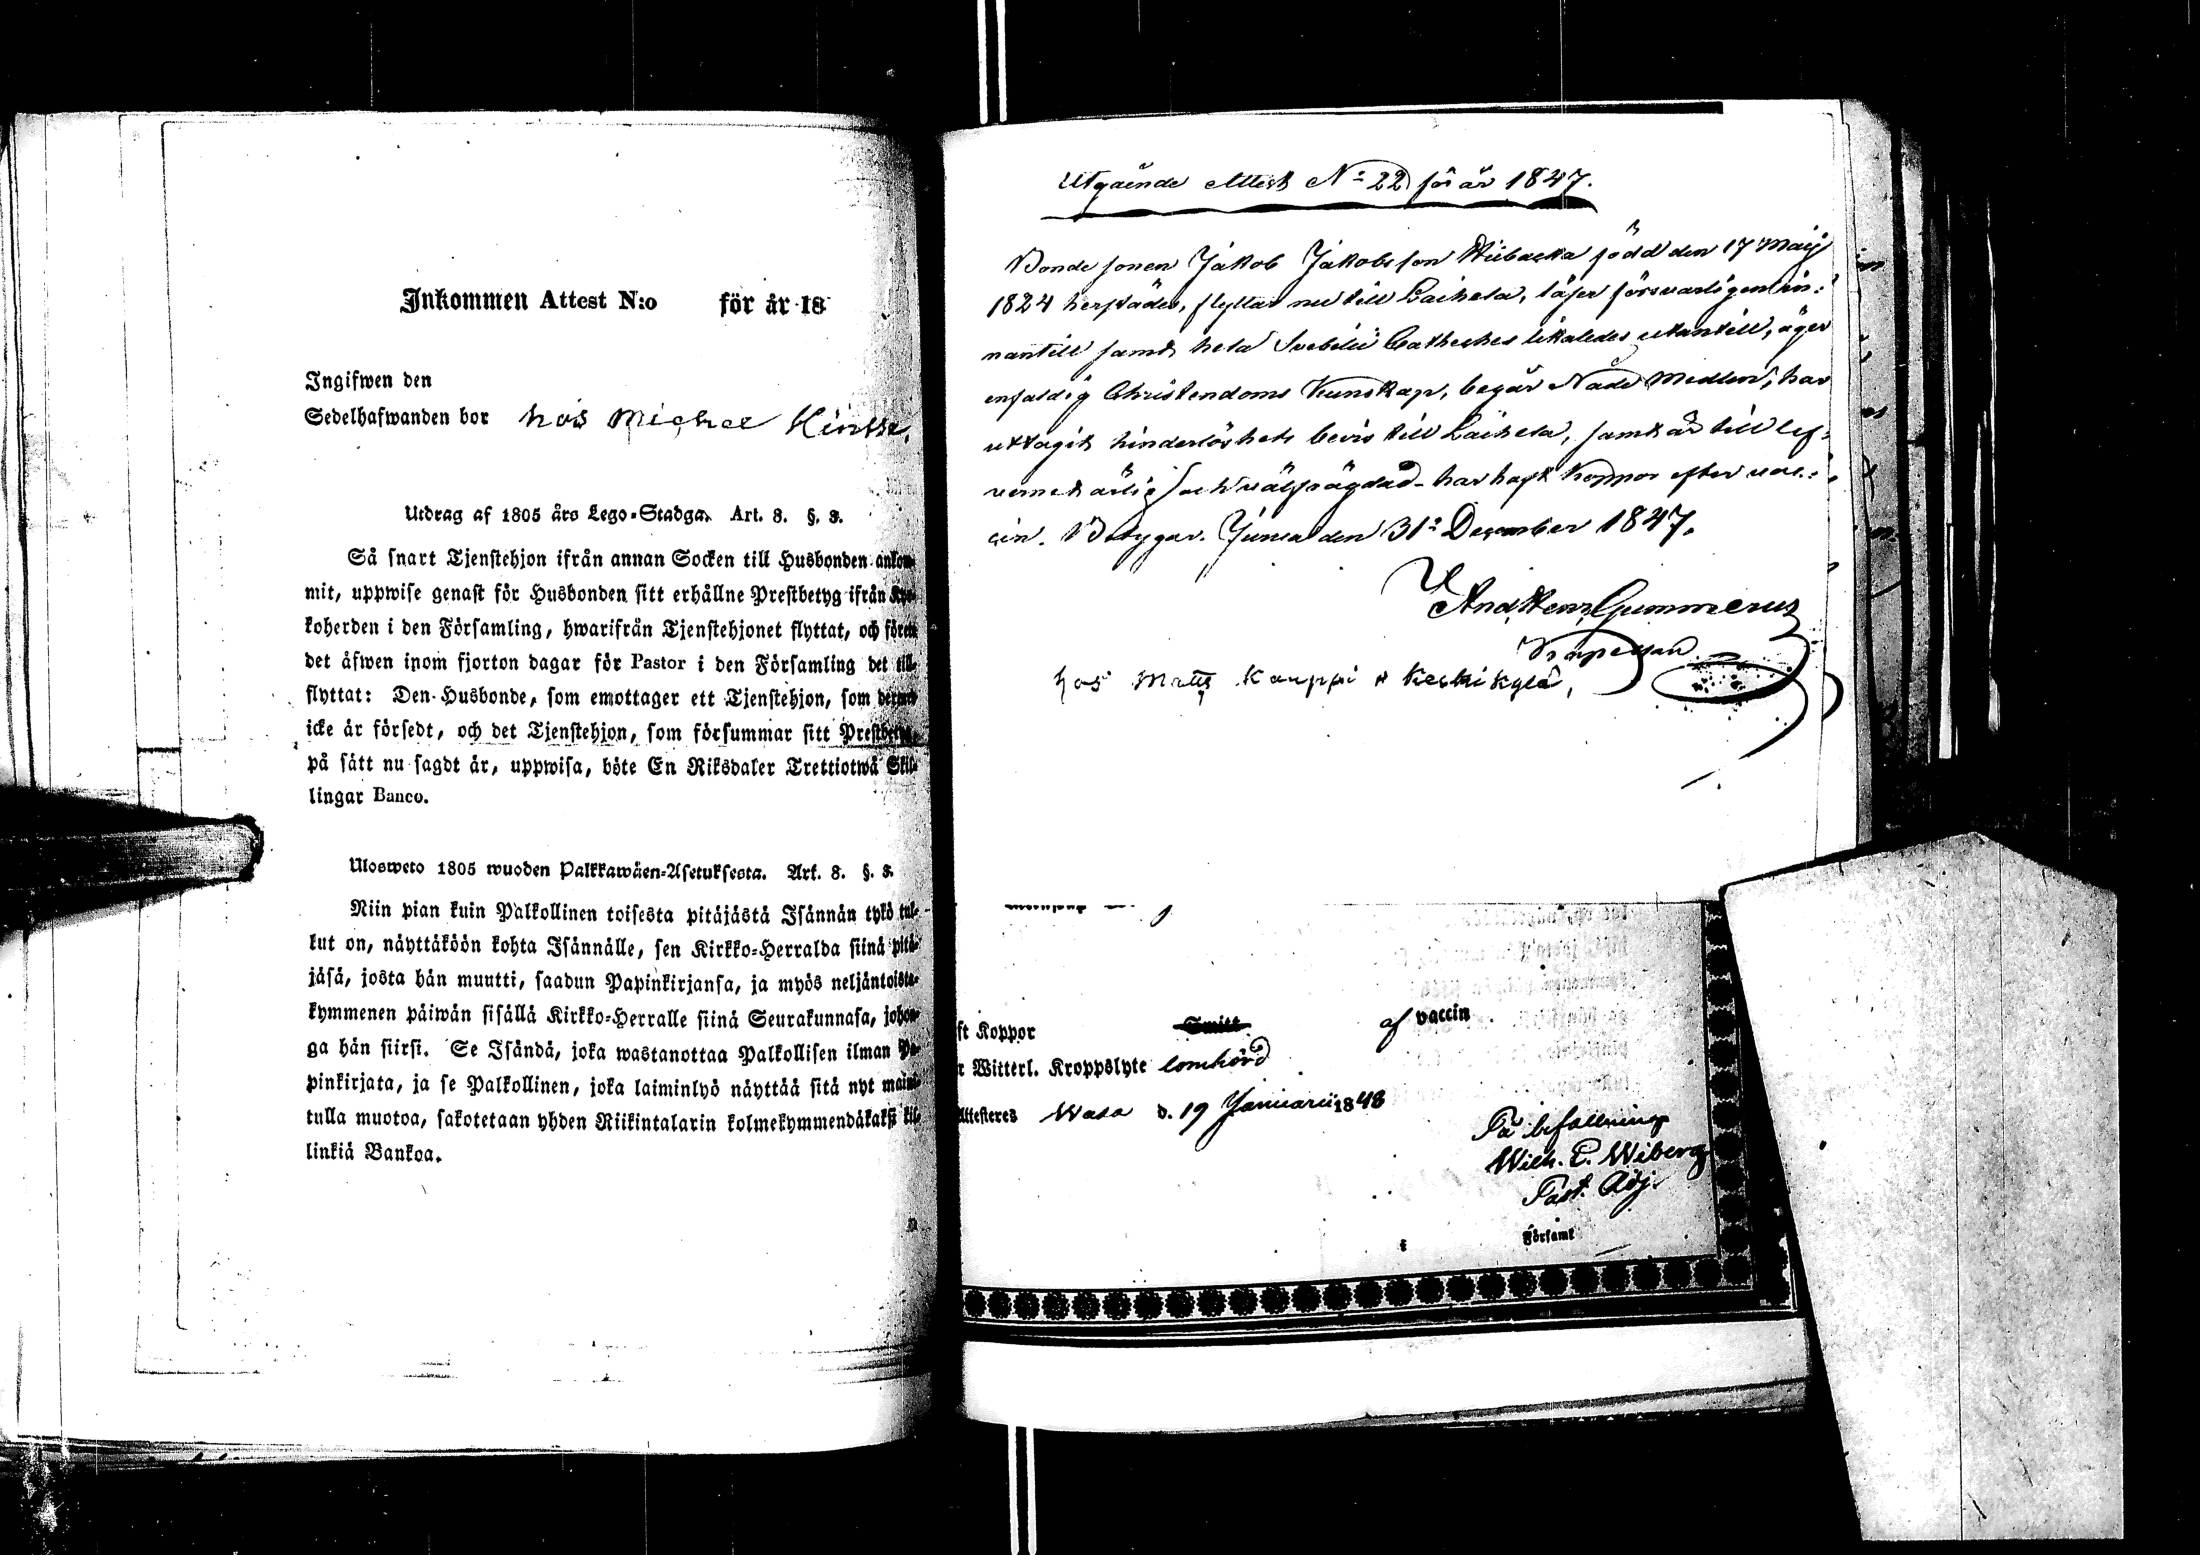 Inkommen Attest N:o för år 18
Ingifwen den
Sedelhafwanden bor hos Michel
Utdrag af 1805 års Lego-Stadga. Art. 8. §. 3.
Så snart Tjenstehjon ifrån annan Socken till Husbonden ankom-
mit, uppwise genast för Husbonden sitt erhållne Prestbetyg ifrån Kyr-
koherden i den Församling, hwarifrån Tjenstehjonet flyttat, och förete
det äfwen inom fjorton dagar för Pastor i den Församling det till-
flyttat: Den Husbonde, som emottager ett Tjenstehjon, som dermed
icke är försedt, och det Tjenstehjon, som försummar sitt Prestbetyg,
på sätt nu sagdt är, uppwisa, böte En Riksdaler Trettiotwå Skil-
lingar Banco.
Ulosweto 1805 wuoden Palkkawäen-Asetuksesta. Art. 8. §. 3.
Niin pian kuin Palkollinen toisesta pitäjästä Isännän tykö tul-
lut on, näyttäköön kohta Isännälle, sen Kirkko-Herralda siinä pitä-
jäsä, josta hän muutti, saadun Papinkirjansa, ja myös neljäntoista-
kymmenen päiwän sisällä Kirkko-Herralle siinä Seurakunnasa, johon-
ga hän siirsi. Se Isändä, joka wastanottaa Palkollisen ilman Pa-
pinkirjata, ja se Palkollinen, joka laiminlyö näyttää sitä nyt maini-
tulla muotoa, sakotetaan yhden Riikintalarin kolmekymmendäkaksi kil-
linkiä Bankoa.
Utgående Attest No 22 för år 1847.
Bonde sonen Jakob Jakobsson född den 17 Maij
1824 herstädes, flyttar nu till Laihela, läser försvarligen in-
nantill samt hela Svebilii Catheches likaledes utantill, äger
enfaldig Christendoms Kunskap, begår Nåde Medlen, har
uttagit hinderlöshets bevis till Laihela, samt är till lef-
vernet ärlig och välfrägdad - har haft koppor efter vac-
cin. Betygar. Jurva den 31 December 1847.
And. Henr. Gummerus
Kapellan
hos Matts Kauppi i Keskikylä,
ft Koppor af vaccin
r Witterl. Kroppslyte lomhörd
Attesteres Wasa d. 19 Januarii 1848
På befallning
Wilh. E. Wiberg
Past. Adj.
Församl